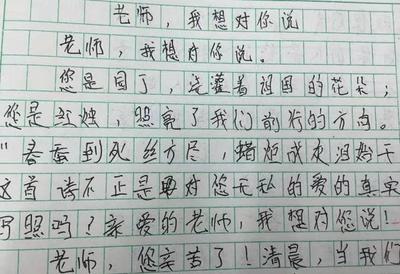 老师，我想对你说
老师，我想对你说。
您是园丁，浇灌着祖国的花朵；
您是红烛，照亮了我们前行的方向。
"春蚕到死丝方尽，蜡炬成灰泪始干
这首诗不正是对您无私的爱的真实
写照吗？亲爱的老师，我想对您说！
老师，您辛苦了！清晨，当我们